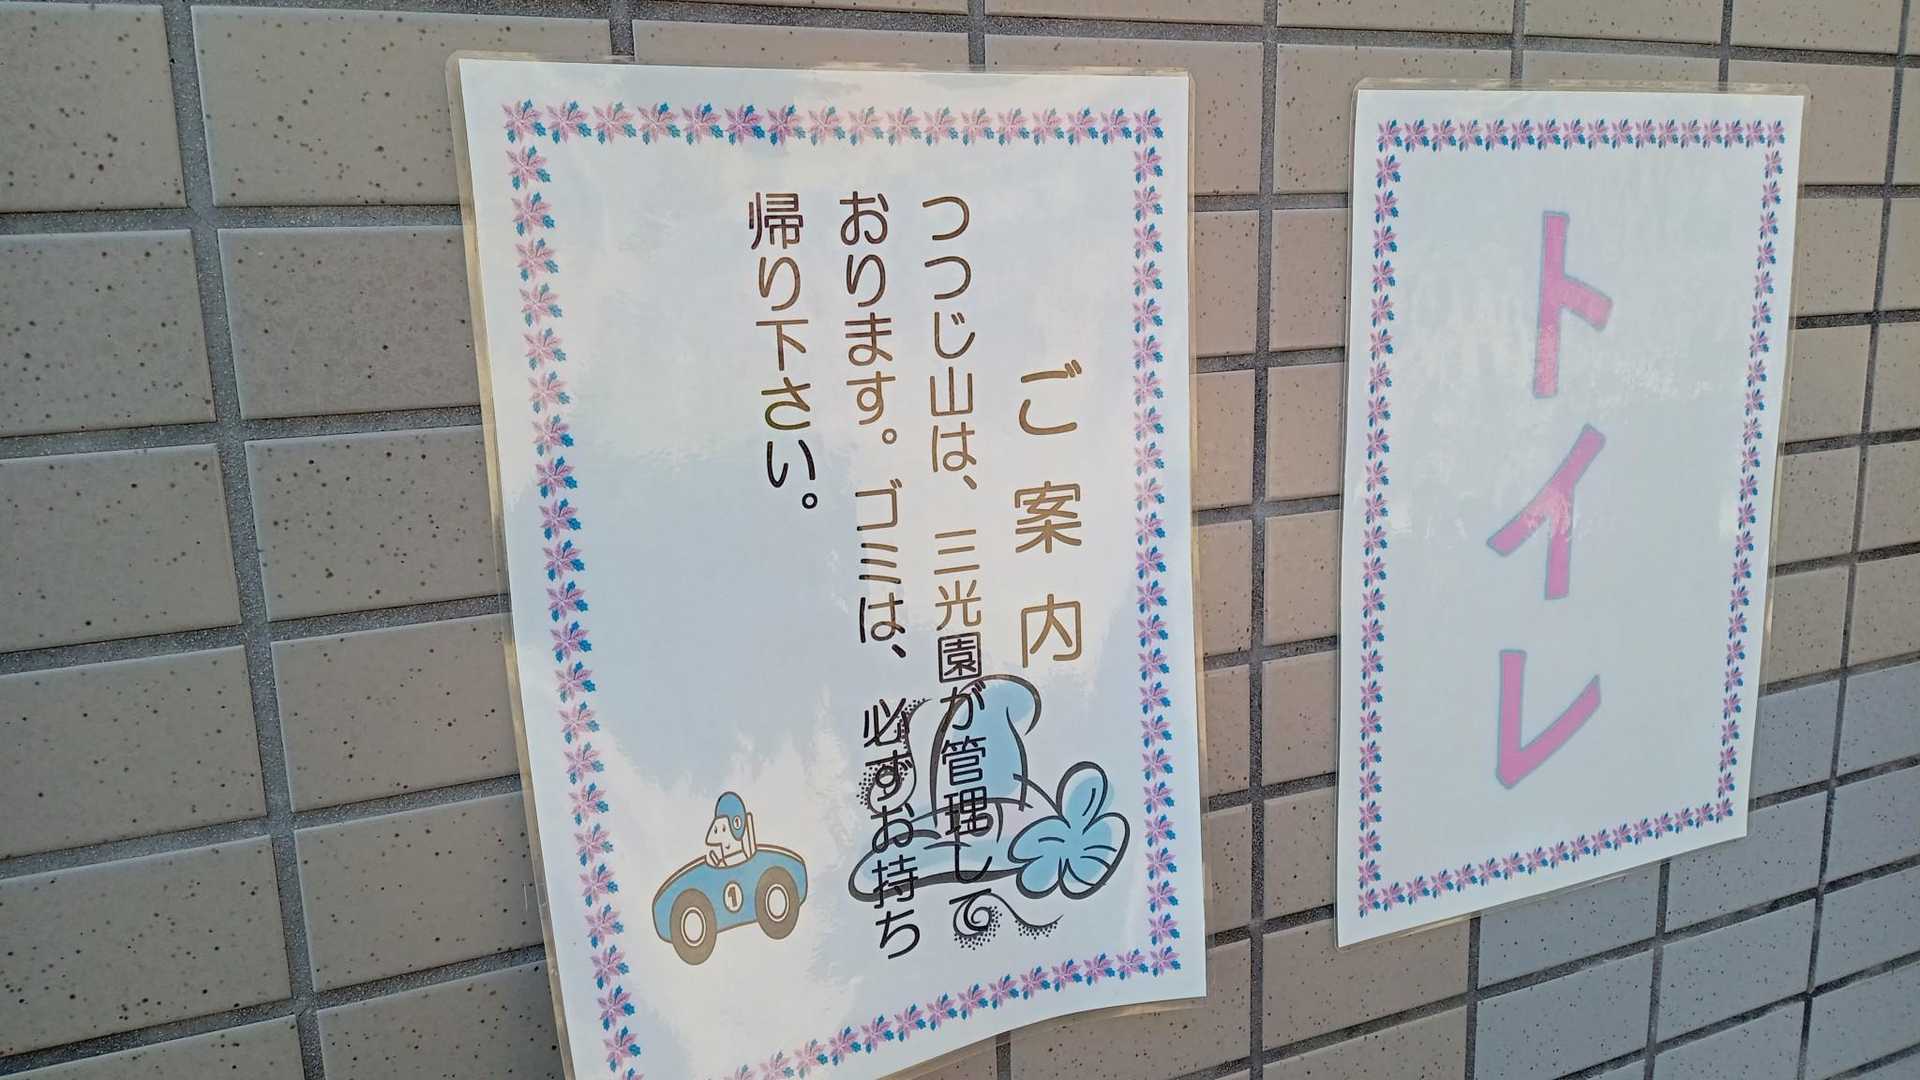 トイレ
ご案内
つつじ山は、三光園が管理して
おります。ゴミは、必ずお持ち
帰り下さい。
1
1